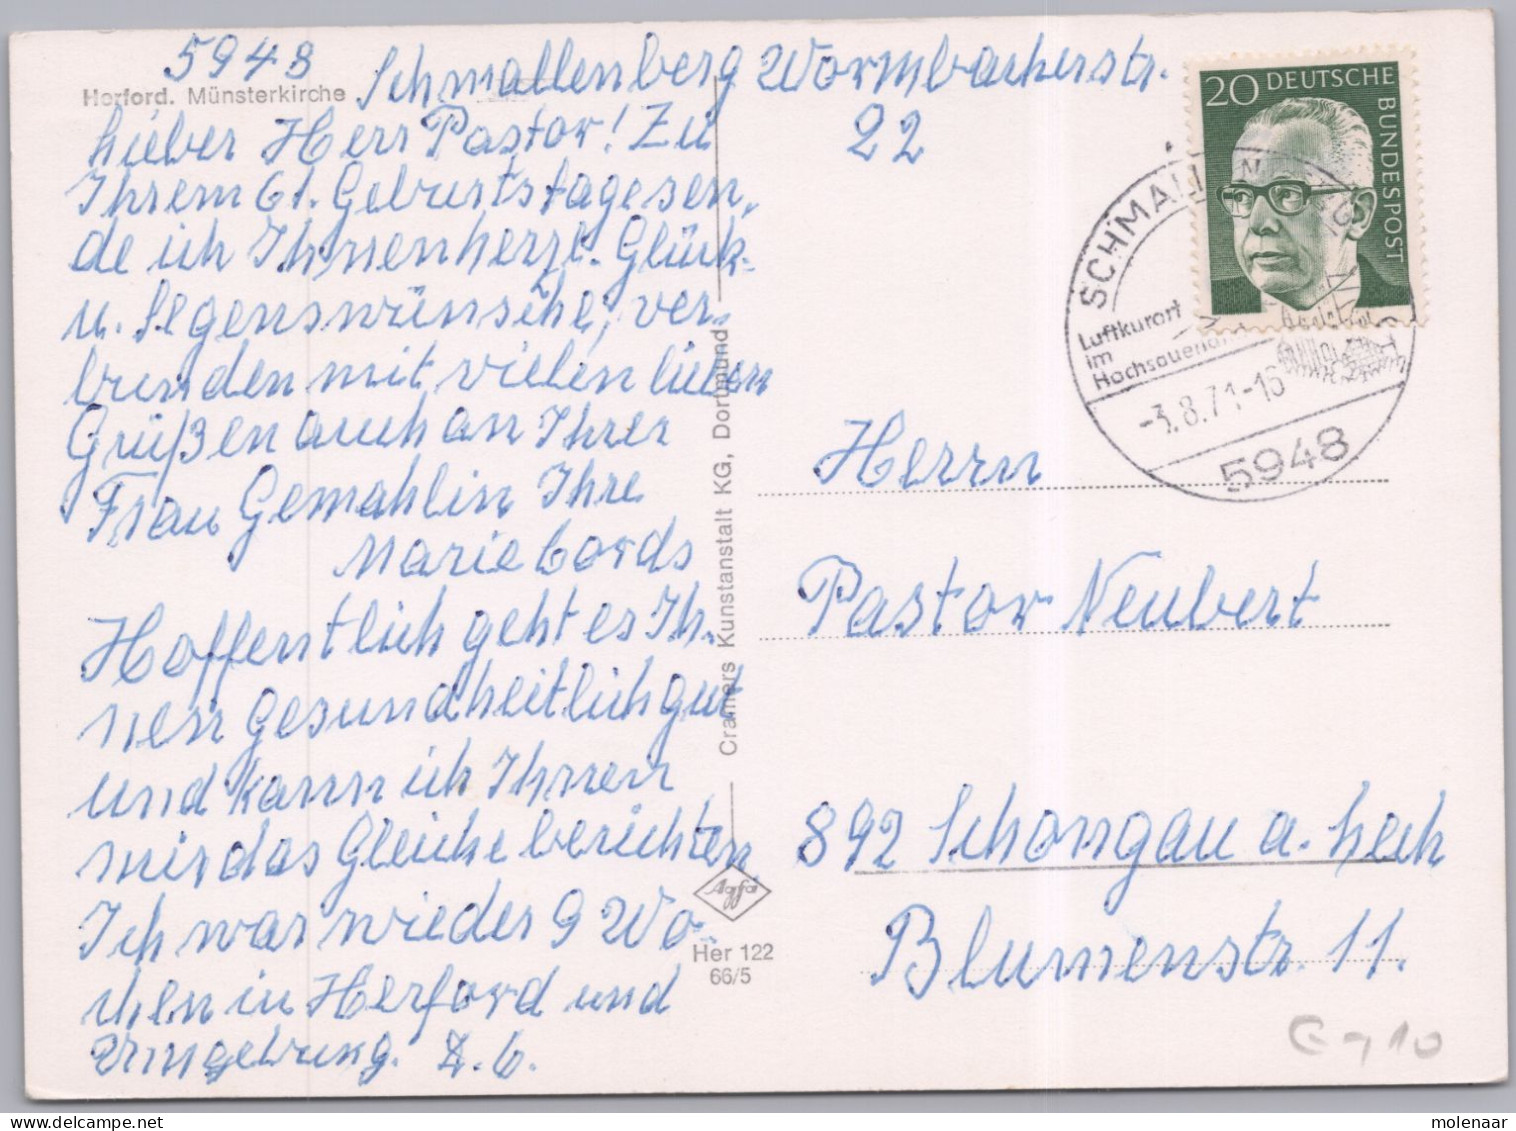 5948 Schmallenberg Wormbacherstr.
22
Herford. Münsterkirche
Lieber Herr Pastor! Zu
Ihrem 61. Geburtstage sen,
de ich Ihnen herzl. Glück-
u. Segenswünsche, ver-
bunden mit vielen lieben
Grüßen auch an Ihrer
Frau Gemahlin Ihre
Marie Cords
Hoffentlich geht es Ih,
nen gesundheitlich gut
und kann ich Ihnen
nur das Gleiche berichten.
Ich war wieder 9 Wo-
chen in Herford und
Umgebung.
Cramers Kunstanstalt KG, Dortmund
Agfa
Her 122
66/5
20 DEUTSCHE
BUNDESPOST
SCHMALLENBERG
Luftkurort
im
Hochsauerland
-3.8.71-16
5948
Herrn
Pastor Neubert
892 Schongau a. Lech
Blumenstr. 11.
molenaar